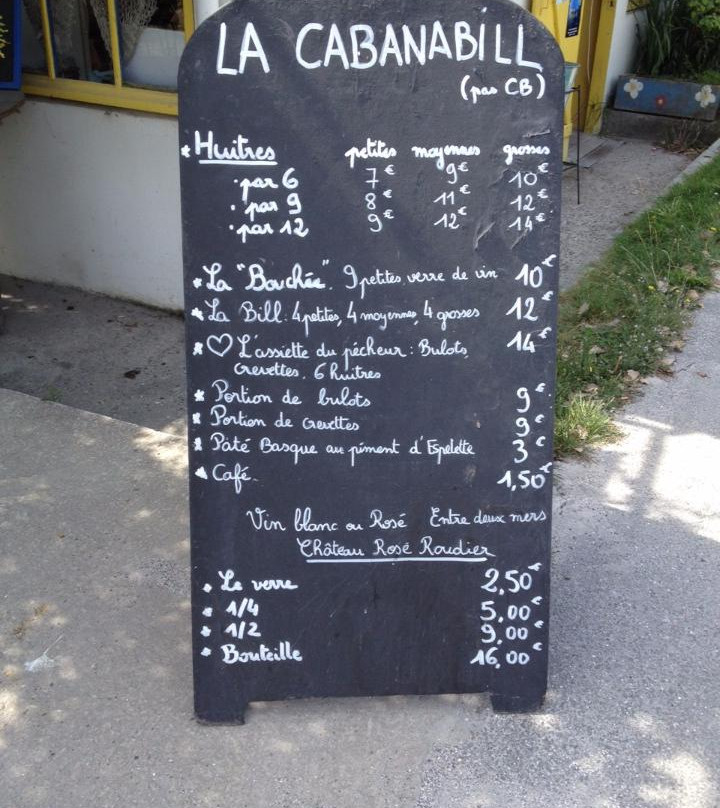 LA CABANABILL
(pas CB)
* Huitres petites moyennes grosses
. par 6 7€ 9€ 10€
. par 9 8€ 11€ 12€
. par 12 9€ 12€ 14€
* La "Bouchée". 9 petites, verre de vin 10€
* La Bill: 4 petites, 4 moyennes, 4 grosses 12€
* ♡ L'assiette du pêcheur: Bulots, 14€
Crevettes, 6 huitres
* Portion de bulots 9€
* Portion de crevettes 9€
* Pâté Basque au piment d'Espelette 3€
* Café. 1,50€
Vin blanc ou Rosé Entre deux mers
Château Rosé Roudier
* Le verre 2,50€
* 1/4 5,00€
* 1/2 9,00€
* Bouteille 16,00€